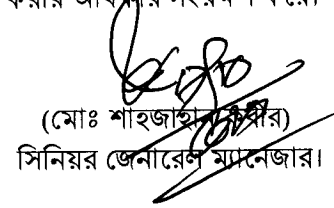 করার অধিকার সংরক্ষণ করে।
(মোঃ শাহজাহান কবীর)
সিনিয়র জেনারেল ম্যানেজার।